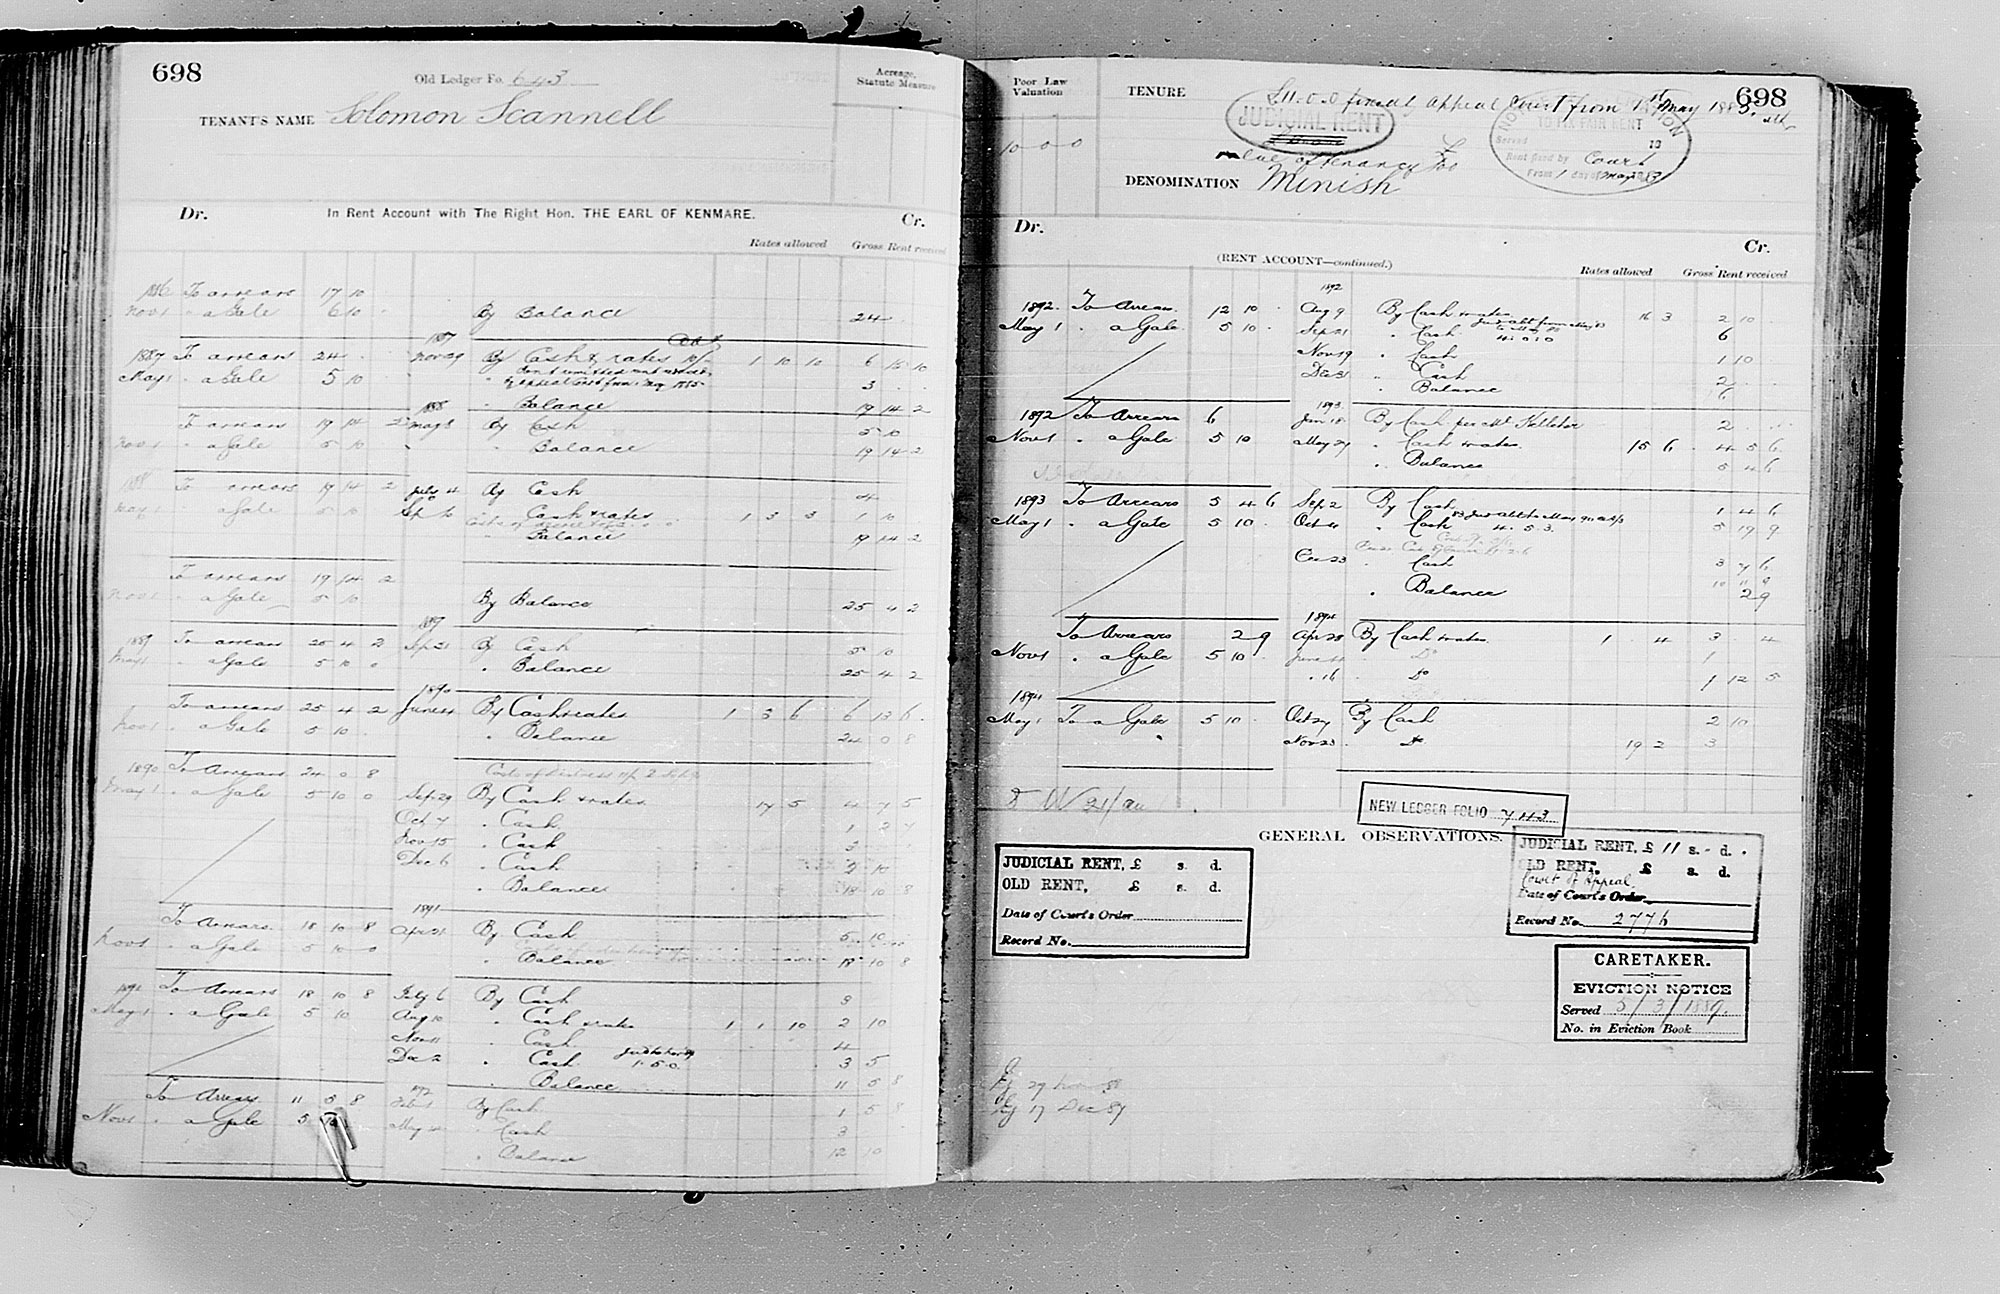 698
Old Ledger Fo. 643
Acreage, Statute Measure
TENANT'S NAME Solomon Scannell
Dr. In Rent Account with The Right Hon. THE EARL OF KENMARE. Cr.
Rates allowed Gross Rent received
1886 To arrears 17 10
Nov 1 " a Gale 6 10 By Balance 24
1887
1887 To arrears 24 Nov 29 By Cash & rates 1 10 10 6 15 10
May 1 " a Gale 5 10 3
" Balance 19 14 2
1888
To arrears 19 14 2 May 8 By Cash 5 10
Nov 1 " a Gale 5 10 " Balance 19 14 2
1888 To arrears 19 14 2 July 4 By Cash 4
May 1 " a Gale 5 10 Sep 10 " Cash & rates 1 3 3 1 10
" Balance 19 14 2
To arrears 19 14 2
Nov 1 " a Gale 5 10 By Balance 25 4 2
1889
1889 To arrears 25 4 2 Sep 21 By Cash 5 10
May 1 " a Gale 5 10 0 " Balance 25 4 2
1890
To arrears 25 4 2 June 4 By Cash & rates 1 3 6 6 13 6
Nov 1 " a Gale 5 10 " Balance 24 0 8
1890 To Arrears 24 0 8
May 1 " a Gale 5 10 0 Sep 29 By Cash & rates 17 5 4 7 5
Oct 7 " Cash 1 2 7
Nov 15 " Cash 3
Dec 6 " Cash 2 10
" Balance 18 10 8
1891
To Arrears 18 10 8 Apr 21 By Cash 5 10
Nov 1 " a Gale 5 10 0 " Balance 18 10 8
1891 To Arrears 18 10 8 July 6 By Cash 3
May 1 " a Gale 5 10 Aug 10 " Cash & rates 1 1 10 2 10
Nov 11 " Cash 4
Dec 2 " Cash 3 5
" Balance 11 5 8
To Arrears 11 5 8 Feb 1 By Cash 1 5 8
Nov 1 " a Gale 5 10 May " Cash 3
" Balance 12 10
698
Poor Law Valuation
10 0 0
TENURE £11.0.0 fixed by Appeal Court from 1st May 1885.
JUDICIAL RENT
TO FIX FAIR RENT
Served 18
Rent fixed by Court
From 1 day of May
value of tenancy £
DENOMINATION Minish
Dr. Cr.
(RENT ACCOUNT—continued.)
Rates allowed Gross Rent received
1892
1892 To Arrears 12 10 Aug 9 By Cash & rates 16 3 2 10
May 1 " a Gale 5 10 Sep 21 " Cash 6
Nov 19 " Cash 1 10
Dec 31 " Cash 2
" Balance 6
1893
1892 To Arrears 6 Jan 18 By Cash per Mr Kelleher 2
Nov 1 " a Gale 5 10 May 27 " Cash & rates 15 6 4 5 6
" Balance 5 4 6
1893 To Arrears 5 4 6 Sep 2 By Cash 1 4 6
May 1 " a Gale 5 10 Oct 4 " Cash 5 19 9
Dec 23 " Cash 3 7 6
10 11 9
" Balance 2 9
1894
To Arrears 2 9 Apr 28 By Cash & rates 1 4 3 4
Nov 1 " a Gale 5 10 June " Do 1
" 16 " Do 1 12 5
1894
May 1 To a Gale 5 10 Oct 27 By Cash 2 10
Nov 23 " Do 19 2 3
NEW LEDGER FOLIO 743
GENERAL OBSERVATIONS.
JUDICIAL RENT, £ s. d.
OLD RENT, £ s. d.
Date of Court's Order
Record No.
JUDICIAL RENT, £ 11 s. - d.
OLD RENT, £ s. d.
Court of Appeal
Date of Court's Order
Record No. 2776
CARETAKER.
EVICTION NOTICE
Served 5/3/1889.
No. in Eviction Book
29 Nov 88
17 Dec 89